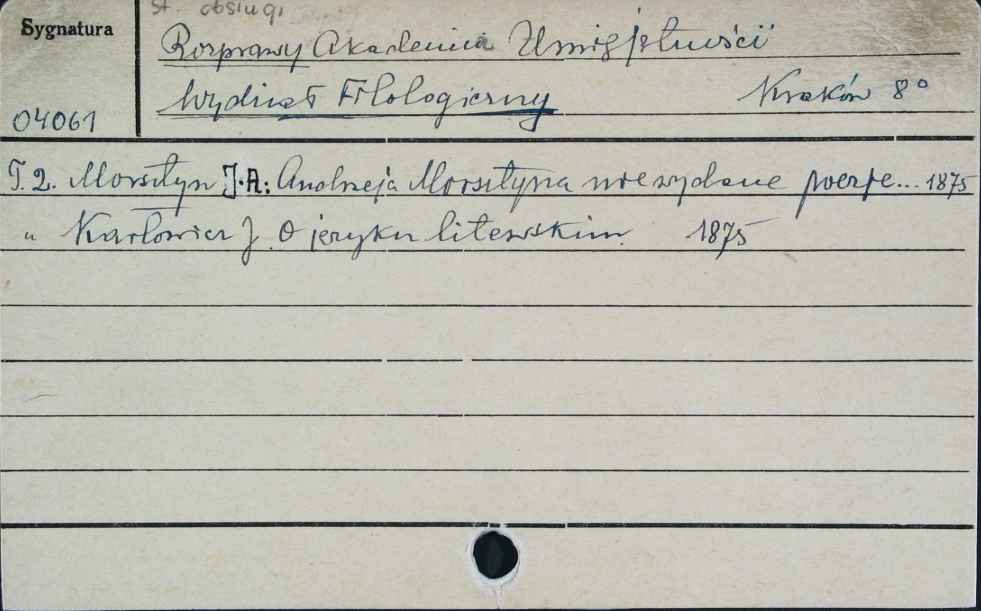 st. obsługi
Sygnatura
Rozprawy Akademia Umiejętności
Wydział Filologiczny Kraków 8°
04061
T. 2. Morsztyn J.A: Andrzeja Morsztyna niewydane poezje... 1875
" Karłowicz J. O języku litewskim. 1875